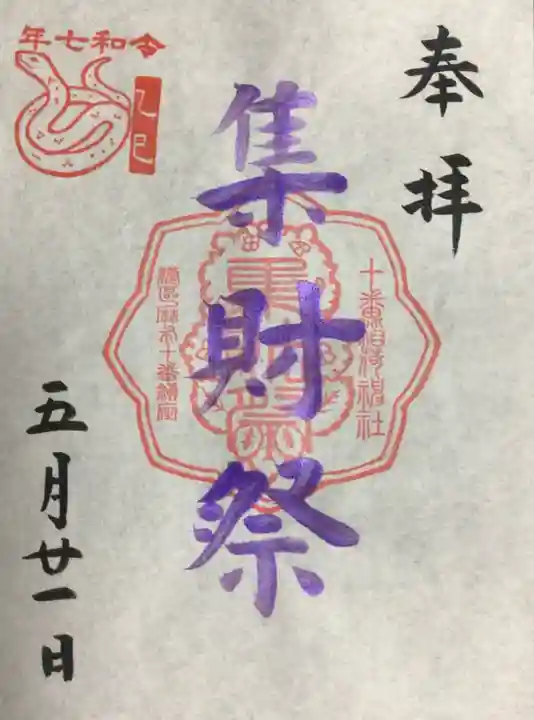 奉拝
集財祭
十番稲荷神社
港区麻布十番鎮座
令和七年
乙巳
五月廿一日